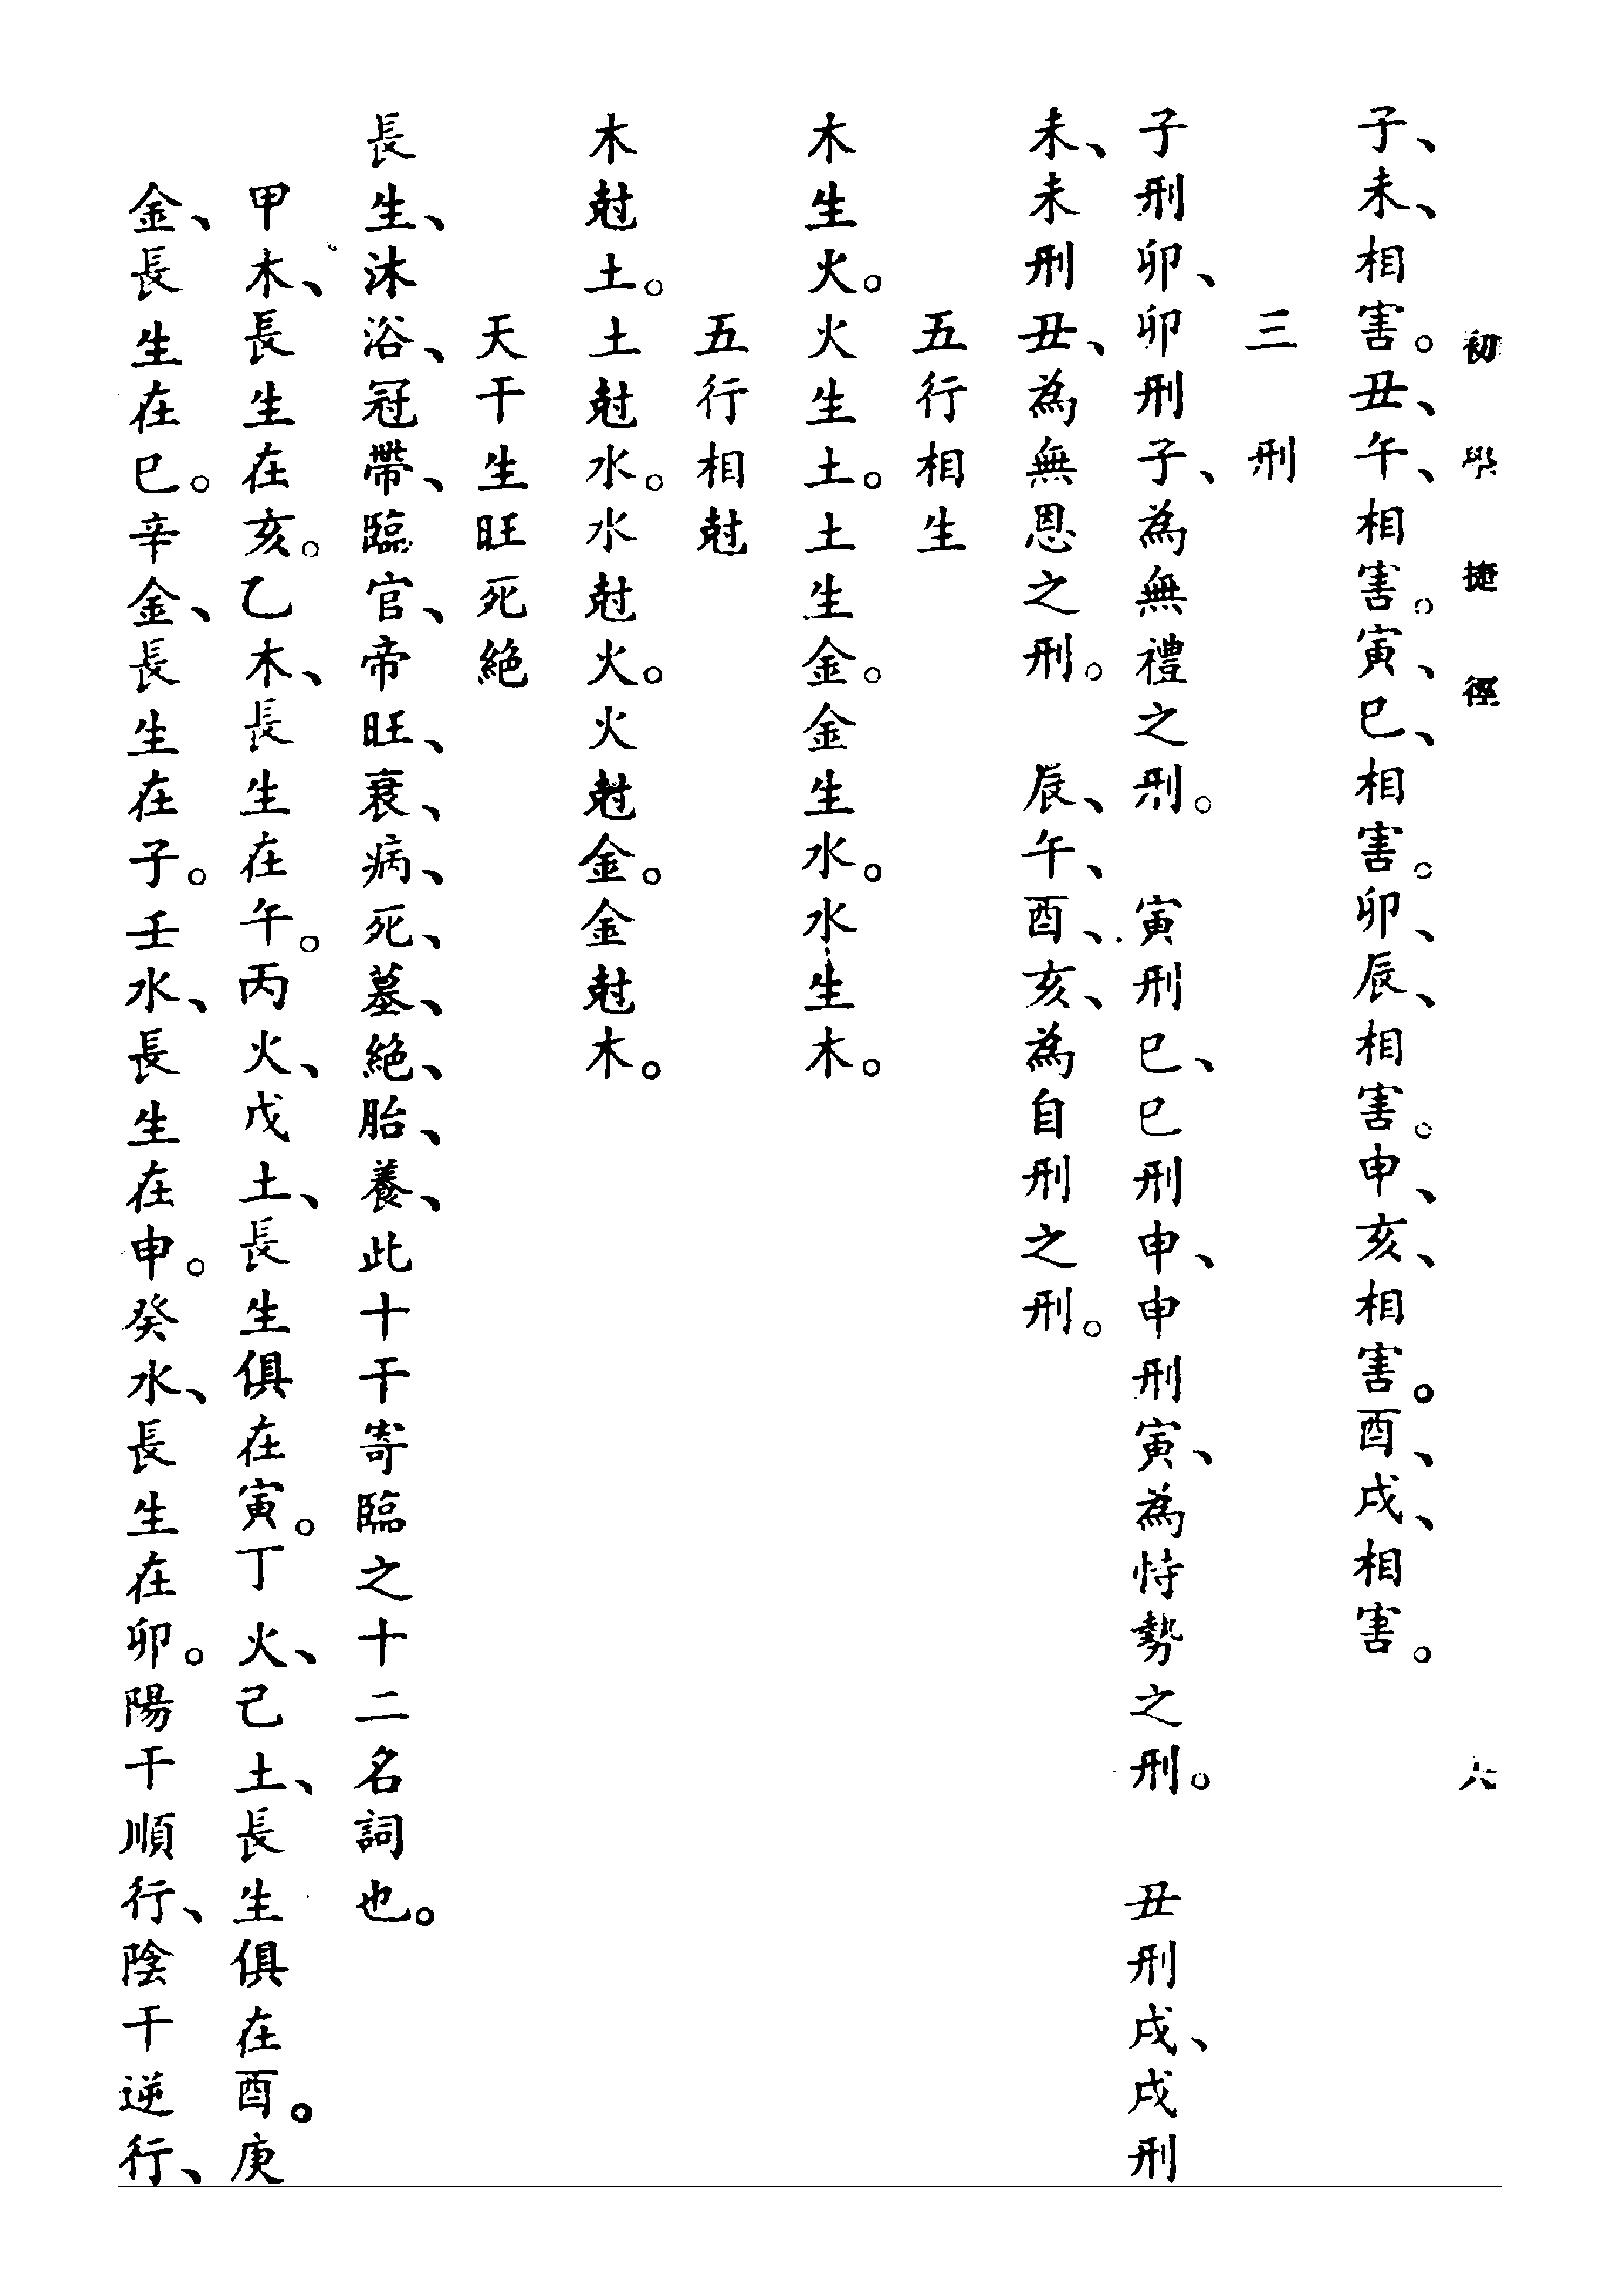 初學捷徑 六
子、未、相害。丑、午、相害。寅、巳、相害。卯、辰、相害。申、亥、相害。酉、戌、相害。
三刑
子刑卯、卯刑子、為無禮之刑。 寅刑巳、巳刑申、申刑寅、為恃勢之刑。 丑刑戌、戌刑
未、未刑丑、為無恩之刑。 辰、午、酉、亥、為自刑之刑。
五行相生
木生火。火生土。土生金。金生水。水生木。
五行相尅
木尅土。土尅水。水尅火。火尅金。金尅木。
天干生旺死絕
長生、沐浴、冠帶、臨官、帝旺、衰、病、死、墓、絕、胎、養、此十干寄臨之十二名詞也。
甲木、長生在亥。乙木、長生在午。丙火、戊土、長生俱在寅。丁火、己土、長生俱在酉。庚
金、長生在巳。辛金、長生在子。壬水、長生在申。癸水、長生在卯。陽干順行、陰干逆行、